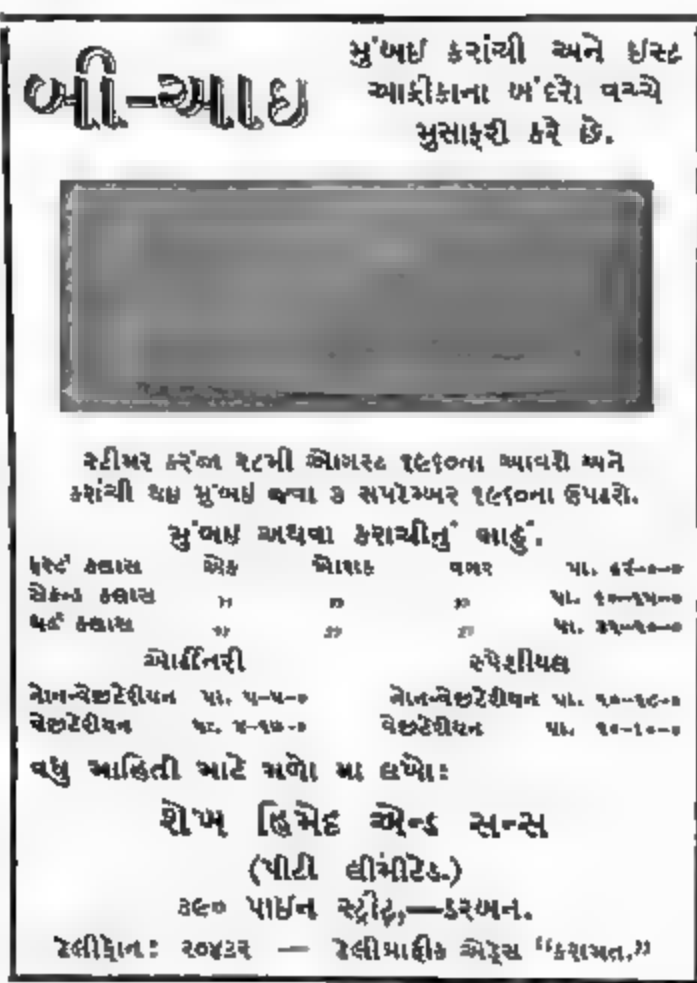 બી-આઇ
મુંબઇ કરાંચી અને ઇસ્ટ
આફ્રીકાના બંદરો વચ્ચે
મુસાફરી કરે છે.
સ્ટીમર કરંજા ૨૮મી ઓગસ્ટ ૧૯૬૦ના આવશે અને
કરાંચી થઇ મુંબઇ જવા ૩ સપટેમ્બર ૧૯૬૦ના ઉપડશે.
મુંબઇ અથવા કરાચીનું ભાડું.
ફર્સ્ટ કલાસ એક ખોરાક વગર પા.
સેકન્ડ કલાસ ,, ,, ,, પા.
થર્ડ કલાસ ,, ,, ,, પા.
ઓર્ડીનરી સ્પેશીયલ
નોન-વેજીટેરીયન પા. ૫-૫-૦ નોન-વેજીટેરીયન પા.
વેજીટેરીયન પા. વેજીટેરીયન પા. ૧૦-૧૦-૦
વધુ માહિતી માટે મળો યા લખો:
શેખ હિમેદ એન્ડ સન્સ
(પીટી લીમીટેડ.)
૩૯૦ પાઇન સ્ટ્રીટ,—ડરબન.
ટેલીફોન: ૨૦૪૩૨ — ટેલીગ્રાફીક એડ્રેસ "કરામત."